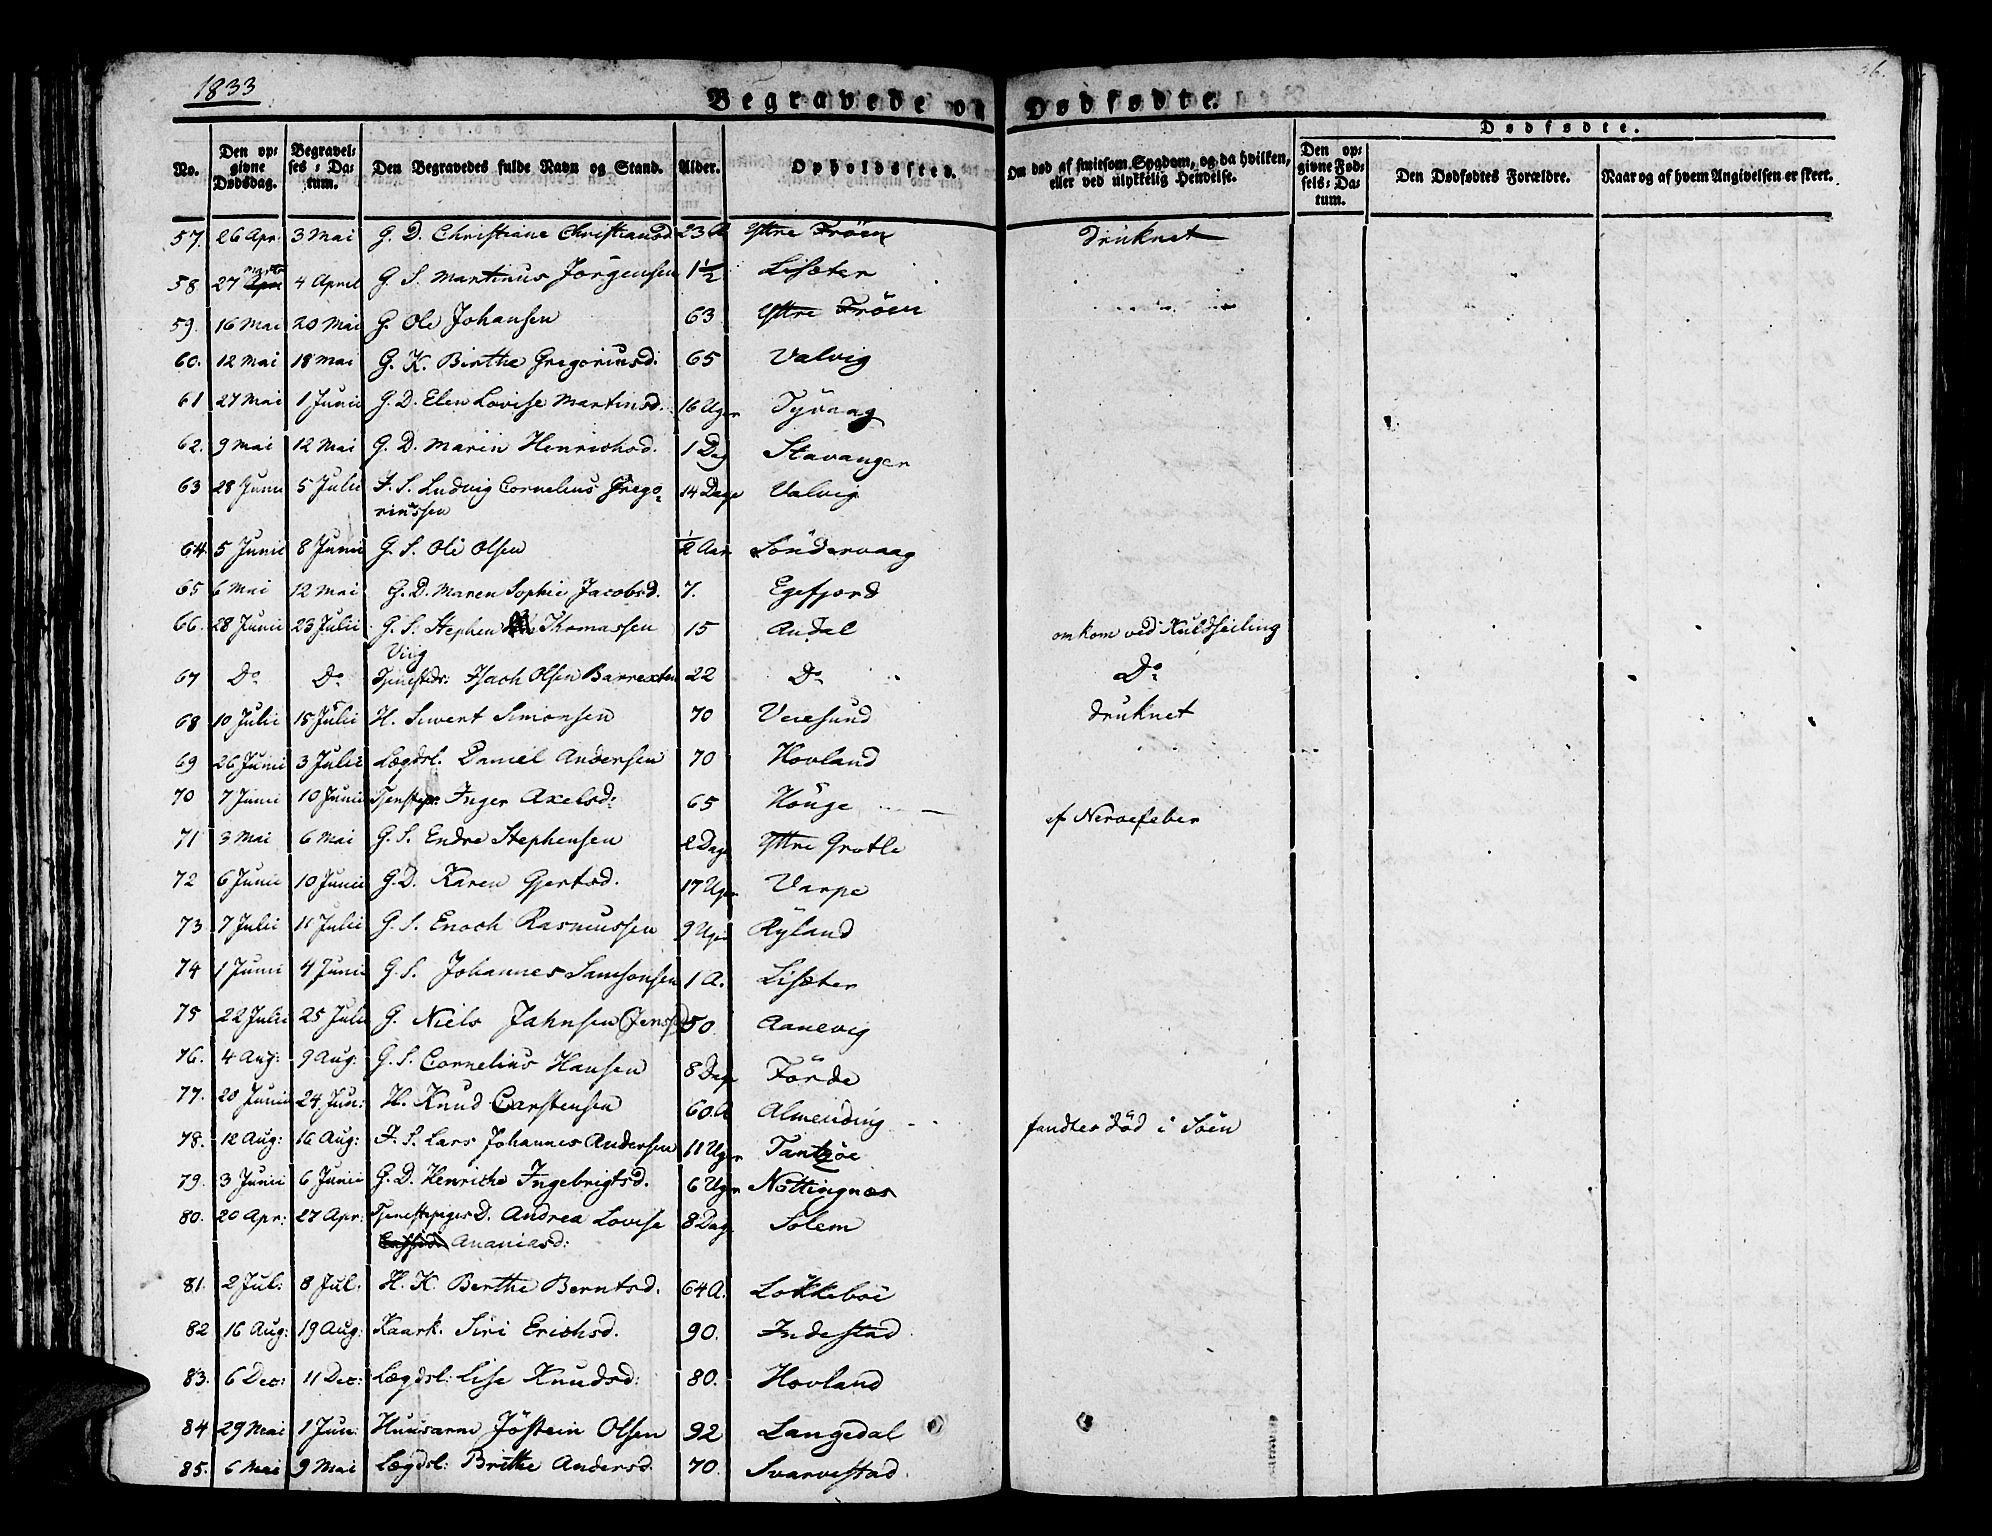 1833
Begravede og Dødfødte.
36.
Dødfødte.
No. | Den opgivne Dødsdag. | Begravelses-Datum. | Den Begravedes fulde Navn og Stand. | Alder. | Opholdssted. | Om død af smitsom Sygdom, og da hvilken, eller ved ulykkelig Hendelse. | Den opgivne Fødsels-Datum. | Den Dødfødtes Forældre. | Naar og af hvem Angivelsen er skeet.
57. 26 Apr: 3 Mai G. D. Christiane Christiansd. 23 A Yttre Fröen druknet
58. 27 Marts 4 April G. S. Martinus Jörgensen 1 1/2 Lisæter
59. 16 Mai 20 Mai G. Ole Johansen 63 Yttre Fröen
60. 12 Mai 18 Mai G. K. Birthe Gregoriusd. 65 Valvig
61 27 Mai 1 Junii G. D. Elen Lovise Martinsd. 16 Uger Tyvaag
62. 9 Mai 12 Mai G. D. Marin Henrichsd. 1 Dag Stavanger
63 28 Junii 5 Julii F. S. Ludvig Cornelius Grego- 14 Dage Valvig
riussen
64. 5 Junii 8 Junii G. S. Ole Olsen 1/2 Aar Söndervaag
65 6 Mai 12 Mai G. D. Maren Sophie Jacobsd. 7. Egefjord
66. 28 Junii 23 Julii G. S. Stephen Thomassen 15 Andal omkom ved Kuldseiling
Virig
67 Do Do Tjenestedr: Isach Olsen Barrexten 22 Do Do
68 10 Julii 15 Julii H. Sivert Simonsen 70 Veiesund druknet
69 26 Junii 3 Julii Lægdsl. Daniel Andersen 70 Hovland
70 7 Junii 10 Junii Tjenstep: Inger Axelsd: 65 Höuge af Nervefeber
71 3 Mai 6 Mai G. S. Endre Stephensen 2 Dage Yttre Grotle
72 6 Junii 10 Junii G. D. Karen Gjertsd. 17 Uger Varpe
73 7 Julii 11 Julii G. S. Enoch Rasmussen 9 Uger Ryland
74 1 Junii 4 Junii G. S. Johannes Samsonsen 1 A. Lisæter
75 22 Julii 25 Julii G. Niels Jahnsen (Jenss) 50 Aanevig
76. 4 Aug: 9 Aug: G. S. Cornelius Hansen 8 Dage Förde
77. 20 Junii 24 Jun: H. Knud Carstensen 60 A Almending fandtes död i Söen
78. 12 Aug: 16 Aug: F. S. Lars Johannes Andersen 11 Uger Tantzöe
79. 3 Junii 6 Junii G. D. Henriche Ingebrigtsd. 6 Uger Nöttingnæs
80. 20 Apr: 27 Apr: Tjenestepiges D. Andrea Lovise 8 Dage Solem
Ananiasd:
81. 2 Jul: 8 Jul. H. K. Berthe Berntsd. 64 A. Lokkeböe
82 16 Aug: 19 Aug: Kaark. Siri Erichsd. 90. Indestad
83. 6 Dec: 11 Dec: Lægdsl: Lise Knudsd: 80. Hovland
84 29 Mai 1 Jun: Huusarm Jöstein Olsen 92 Langedal
85. 6 Mai 9 Mai Lægdsl: Brithe Andersd. 70. Svarvestad